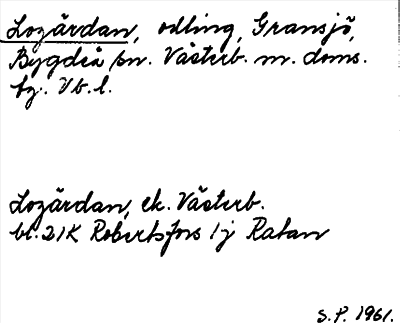 Lozärdan, odling, Gransjö,
Bygdeå sn. Västerb. m. doms.
fz. Vb. l.
Lozärdan, ek. Västerb.
bl. 21K Robertsfors 1j Ratan
S.P. 1961.